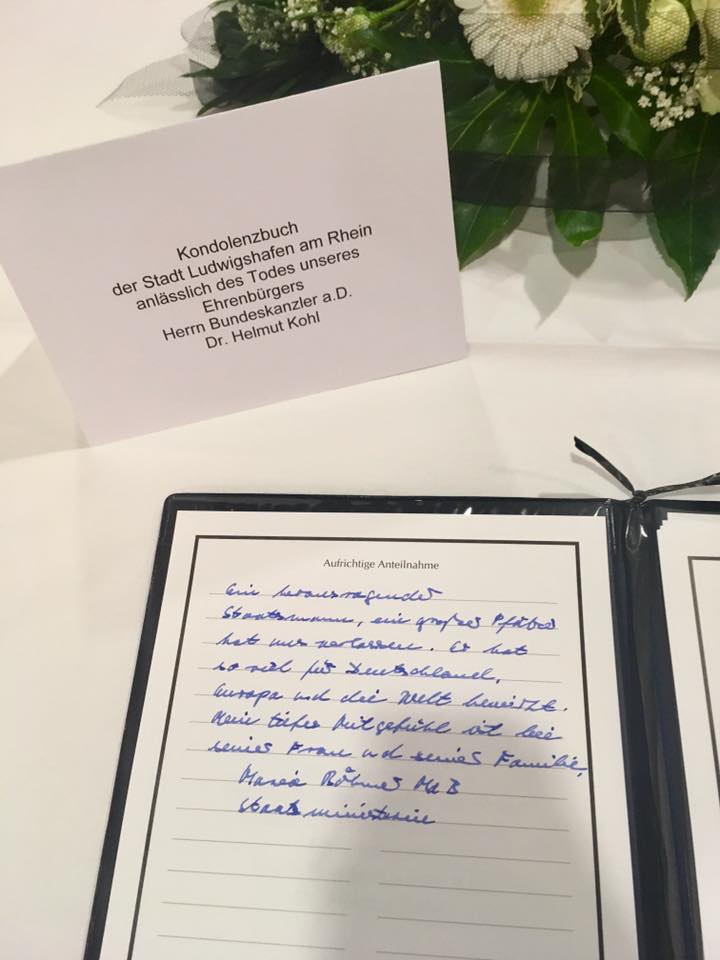 Kondolenzbuch
der Stadt Ludwigshafen am Rhein
anlässlich des Todes unseres
Ehrenbürgers
Herrn Bundeskanzler a.D.
Dr. Helmut Kohl
Aufrichtige Anteilnahme
Ein herausragender
Staatsmann, ein großer Pfälzer
hat uns verlassen. Er hat
so viel für Deutschland,
Europa und die Welt bewirkt.
Mein tiefes Mitgefühl ist bei
seiner Frau und seiner Familie.
Maria Böhmer MdB
Staatsministerin